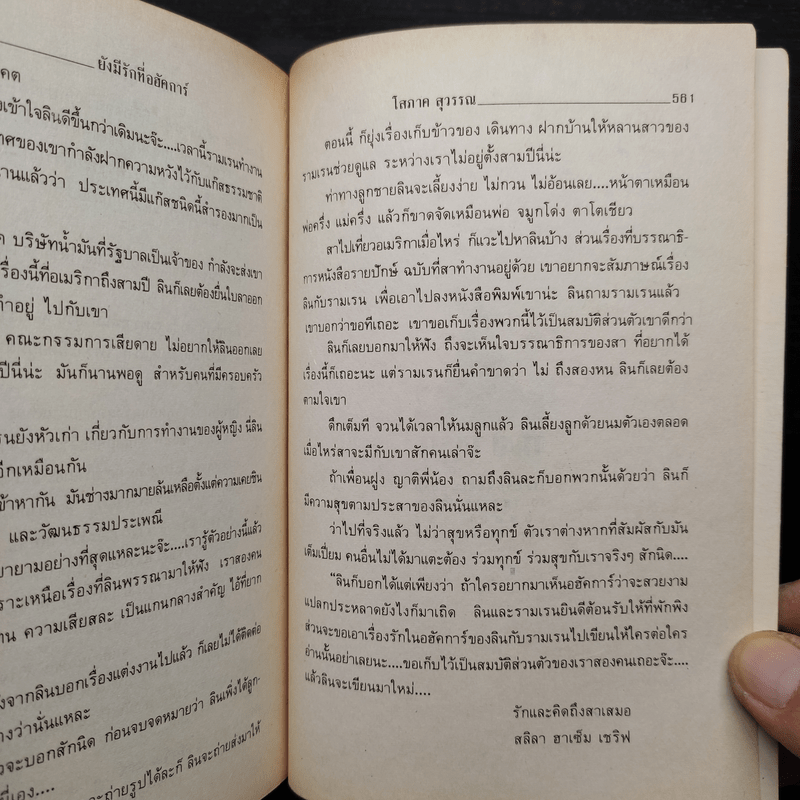 ยังมีรักที่อฮัคการ์
คต
งเข้าใจลินดีขึ้นกว่าเดิมนะจ๊ะ....เวลานี้รามเรนทำงาน
ทศของเขากำลังฝากความหวังไว้กับแก๊สธรรมชาติ
านแล้วว่า ประเทศนี้มีแก๊สชนิดนี้สำรองมากเป็น
ค บริษัทน้ำมันที่รัฐบาลเป็นเจ้าของ กำลังจะส่งเขา
เรื่องนี้ที่อเมริกาถึงสามปี ลินก็เลยต้องยื่นใบลาออก
ทำอยู่ ไปกับเขา
คณะกรรมการเสียดาย ไม่อยากให้ลินออกเลย
ปีนี่น่ะ มันก็นานพอดู สำหรับคนที่มีครอบครัว
รนยังหัวเก่า เกี่ยวกับการทำงานของผู้หญิง นี่ลิน
อีกเหมือนกัน
ข้าหากัน มันช่างมากมายล้นเหลือตั้งแต่ความเคยชิน
และวัฒนธรรมประเพณี
ยายามอย่างที่สุดแหละนะจ๊ะ....เรารู้ตัวอย่างนี้แล้ว
ราะเหนือเรื่องที่ลินพรรณามาให้ฟัง เราสองคน
าน ความเสียสละ เป็นแกนกลางสำคัญ ไอ้ที่ยาก
งจากลินบอกเรื่องแต่งงานไปแล้ว ก็เลยไม่ได้ติดต่อ
างว่านั่นแหละ
จะบอกสักนิด ก่อนจบจดหมายว่า ลินเพิ่งได้ลูก-
ะถ่ายรูปได้ละก็ ลินจะถ่ายส่งมาให้
นี่เอง....
โสภาค สุวรรณ 561
ตอนนี้ ก็ยุ่งเรื่องเก็บข้าวของ เดินทาง ฝากบ้านให้หลานสาวของ
รามเรนช่วยดูแล ระหว่างเราไม่อยู่ตั้งสามปีนี่น่ะ
ท่าทางลูกชายลินจะเลี้ยงง่าย ไม่กวน ไม่อ้อนเลย....หน้าตาเหมือน
พ่อครึ่ง แม่ครึ่ง แล้วก็ขาดจัดเหมือนพ่อ จมูกโด่ง ตาโตเชียว
สาไปเที่ยวอเมริกาเมื่อไหร่ ก็แวะไปหาลินบ้าง ส่วนเรื่องที่บรรณาธิ-
การหนังสือรายปักษ์ ฉบับที่สาทำงานอยู่ด้วย เขาอยากจะสัมภาษณ์เรื่อง
ลินกับรามเรน เพื่อเอาไปลงหนังสือพิมพ์เขาน่ะ ลินถามรามเรนแล้ว
เขาบอกว่าขอทีเถอะ เขาขอเก็บเรื่องพวกนี้ไว้เป็นสมบัติส่วนตัวเขาดีกว่า
ลินก็เลยบอกมาให้ฟัง ถึงจะเห็นใจบรรณาธิการของสา ที่อยากได้
เรื่องนี้ก็เถอะนะ แต่รามเรนก็ยื่นคำขาดว่า ไม่ ถึงสองหน ลินก็เลยต้อง
ตามใจเขา
ดึกเต็มที จวนได้เวลาให้นมลูกแล้ว ลินเลี้ยงลูกด้วยนมตัวเองตลอด
เมื่อไหร่สาจะมีกับเขาสักคนเล่าจ๊ะ
ถ้าเพื่อนฝูง ญาติพี่น้อง ถามถึงลินละก็บอกพวกนั้นด้วยว่า ลินก็
มีความสุขตามประสาของลินนั่นแหละ
ว่าไปที่จริงแล้ว ไม่ว่าสุขหรือทุกข์ ตัวเราต่างหากที่สัมผัสกับมัน
เต็มเปี่ยม คนอื่นไม่ได้มาแตะต้อง ร่วมทุกข์ ร่วมสุขกับเราจริงๆ สักนิด....
"ลินก็บอกได้แต่เพียงว่า ถ้าใครอยากมาเห็นอฮัคการ์ว่าจะสวยงาม
แปลกประหลาดยังไงก็มาเถิด ลินและรามเรนยินดีต้อนรับให้ที่พักพิง
ส่วนจะขอเอาเรื่องรักในอฮัคการ์ของลินกับรามเรนไปเขียนให้ใครต่อใคร
อ่านนั้นอย่าเลยนะ....ขอเก็บไว้เป็นสมบัติส่วนตัวของเราสองคนเถอะจ๊ะ....
แล้วลินจะเขียนมาใหม่....
รักและคิดถึงสาเสมอ
สลิลา ฮาเซ็ม เชริฟ